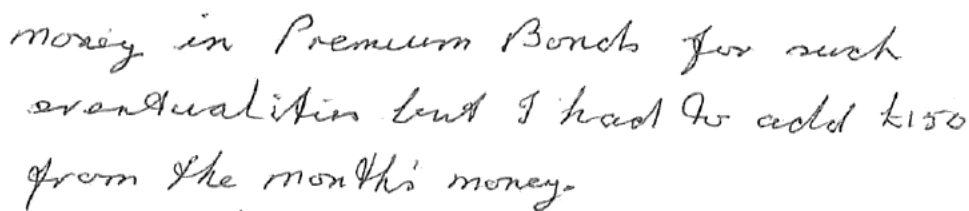 money in Premium Bonds for such
eventualities but I had to add £150
from the month's money.